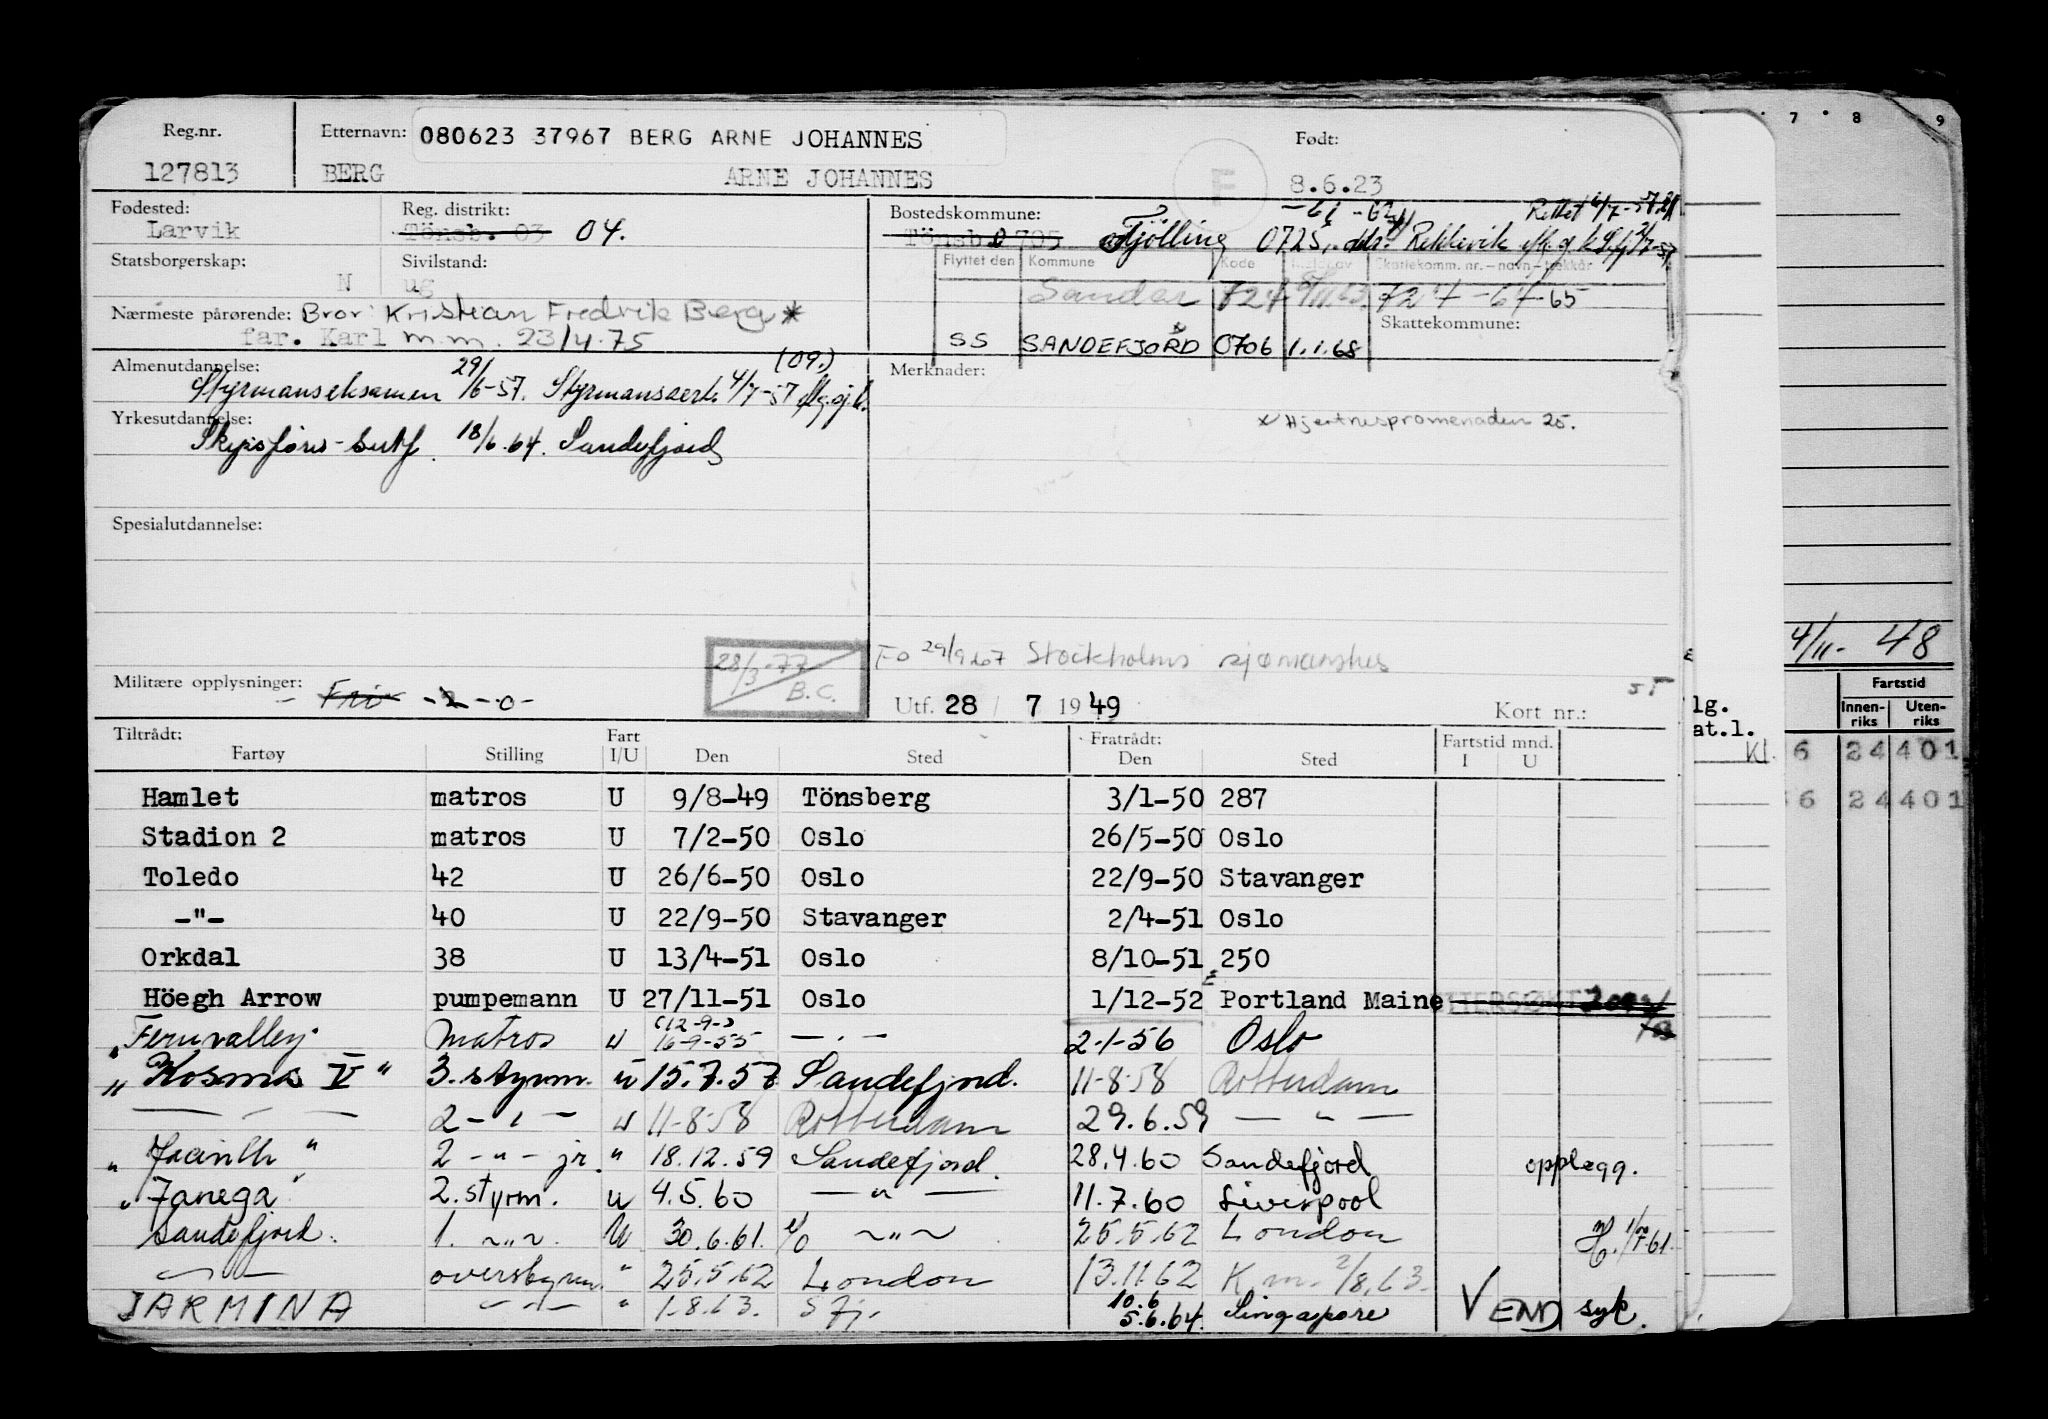 Reg.nr. Etternavn: 080623 37967 BERG ARNE JOHANNES Født:
127813 BERG ARNE JOHANNES F 8.6.23
Fødested: Reg. distrikt: Bostedskommune: -61 -62 Rettet 6/7-
Larvik Tönsb. 03 04. Tönsb. 0 705 Tjölling 0725, Rekkevik
Statsborgerskap: Sivilstand: Flyttet den Kommune Kode Skattekomm. nr. - navn - trekkår
N ug Sandar 727 727 -64-65
Nærmeste pårørende: Bror: Kristian Fredrik Berg * Skattekommune:
far. Karl m.m. 23/4.75 SS SANDEFJORD x 0706 1.1.68
Almenutdannelse: (09.) Merknader:
Styrmanseksamen 29/6-57. Styrmanssert. 4/7-57
Yrkesutdannelse: x Hjertnespromenaden 25.
Skipsførersertf. 18/6.64. Sandefjord
Spesialutdannelse:
28/3-77 B.C. Fo 29/9.67 Stockholms sjømannshus
Militære opplysninger: - Fri -2-0- ST
Utf. 28 / 7 1949 Kort nr.:
Tiltrådt: Fart Fratrådt: Fartstid mnd.
Fartøy Stilling I/U Den Sted Den Sted I U
Hamlet matros U 9/8-49 Tönsberg 3/1-50 287
Stadion 2 matros U 7/2-50 Oslo 26/5-50 Oslo
Toledo 42 U 26/6-50 Oslo 22/9-50 Stavanger
-"- 40 U 22/9-50 Stavanger 2/4-51 Oslo
Orkdal 38 U 13/4-51 Oslo 8/10-51 250
Höegh Arrow pumpemann U 27/11-51 Oslo 1/12-52 E Portland Maine
"Fernvalley" matros u (12-9-) 16-9-55 - " - 2-1-56 Oslo
"Kosmos V" 3. styrm. u 15.7.57 Sandefjord. 11-8-58 Rotterdam
- " - 2 - " - u 11-8-58 Rotterdam 29.6.59 - " -
"Jacinth" 2 - " - jr. " 18.12.59 Sandefjord. 28.4.60 Sandefjord opplegg.
"Janega" 2. styrm. u 4.5.60 - " - 11.7.60 Liverpool
Sandefjord. 1. - " -. U 30.6.61. - " - 25.5.62 London
- " - overstyrm. " 25.5.62 London 13.11.62 K.m. 2/8.63.
JARMINA - " - " 1.8.63. Sfj. 10.6 5.6.64. Singapore VEND syk.
7 8 9
4/11- 48
Fartstid
Innen-riks Uten-riks
lg.
at.l.
Kl. 6 24 401
6 24 401